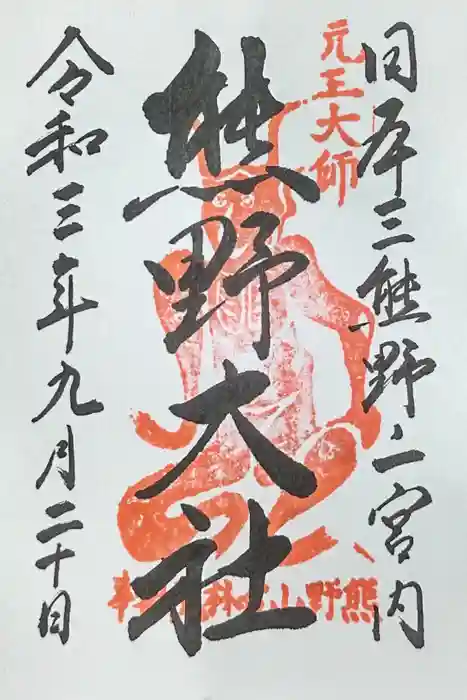 日本三熊野之宮内
元三大師
熊野大社
令和三年九月二十日